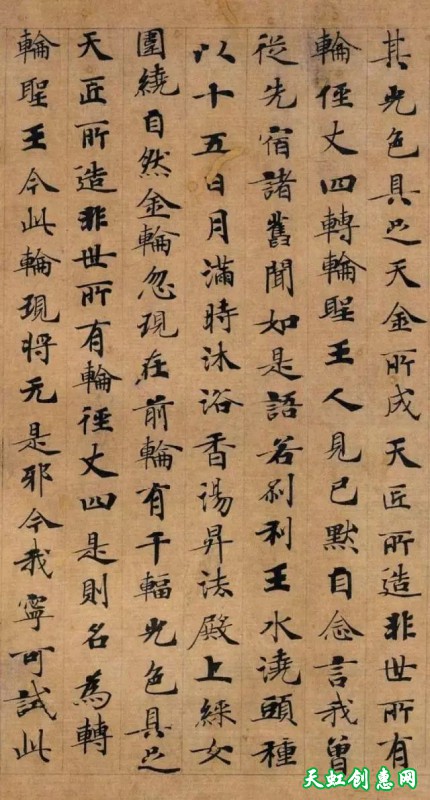 其光色具足天金所成天匠所造非世所有
輪俓丈四轉輪聖王人見已默自念言我曽
從先宿諸舊聞如是語若刹利王水澆頭種
以十五日月滿時沐浴香湯昇法殿上婇女
圍繞自然金輪忽現在前輪有千輻光色具足
天匠所造非世所有輪徑丈四是則名為轉
輪聖王今此輪現将无是邪今我寧可試此
天虹创惠网